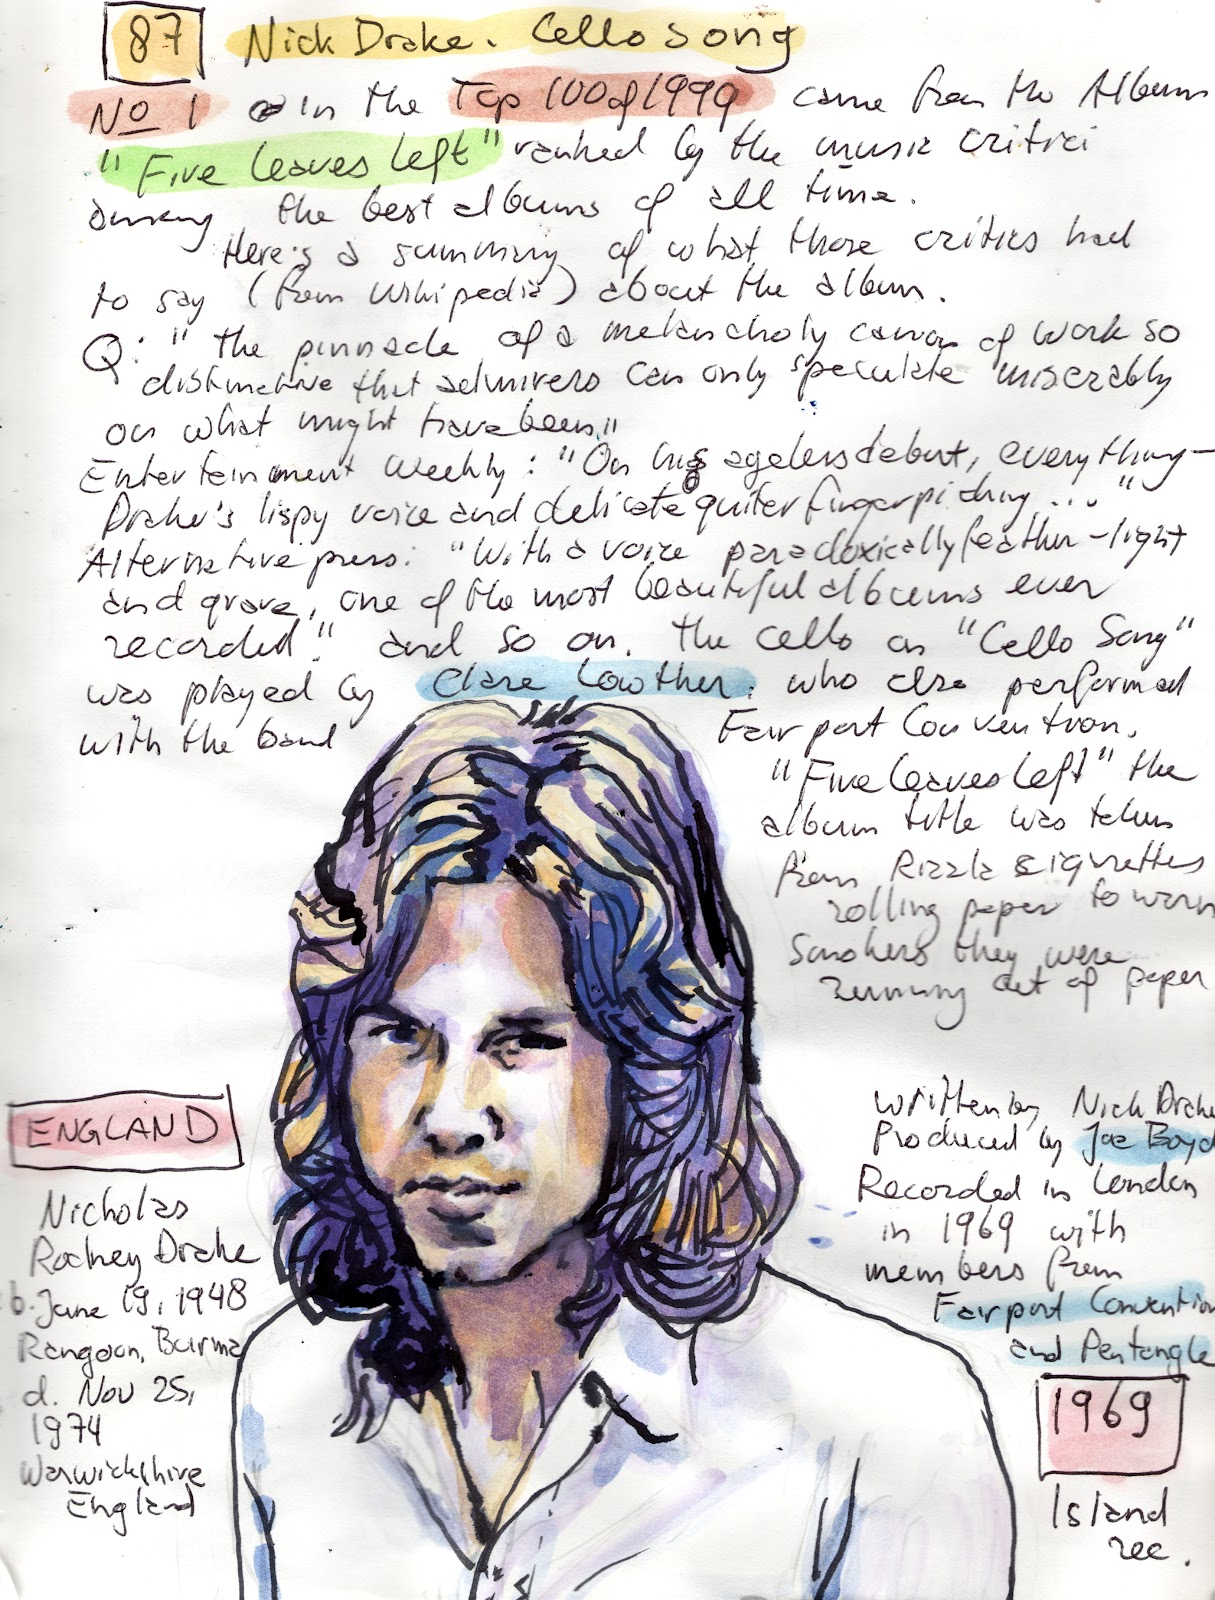 87 Nick Drake. Cello Song
No 1 in the Top 100 of 1999 came from the Album
"Five leaves left" ranked by the music critici
among the best albums of all time.
Here's a summary of what those critics had
to say (from Wikipedia) about the album.
Q: "the pinnacle of a melancholy canon of work so
distinctive that admirers can only speculate miserably
on what might have been"
Entertainment Weekly: "On his ageless debut, everything-
Drake's lispy voice and delicate guiter fingerpicking..."
Alternative press: "With a voice paradoxically feather-light
and grave, one of the most beautiful albums ever
recorded." and so on. The cello on "Cello Song"
was played by Clare Lowther. who also performed
with the band Fairport Convention.
"Five leaves left" the
album title was taken
from Rizzla sigarettes
rolling paper to warn
Smokers they were
running out of paper
ENGLAND
Nicholas
Rodney Drake
b. June 19, 1948
Rangoon, Burma
d. Nov 25,
1974
Warwickshire
England
written by Nick Drake
Produced by Joe Boyd
Recorded in London
in 1969 with
members from
Fairport Convention
and Pentangle
1969
Island
rec.